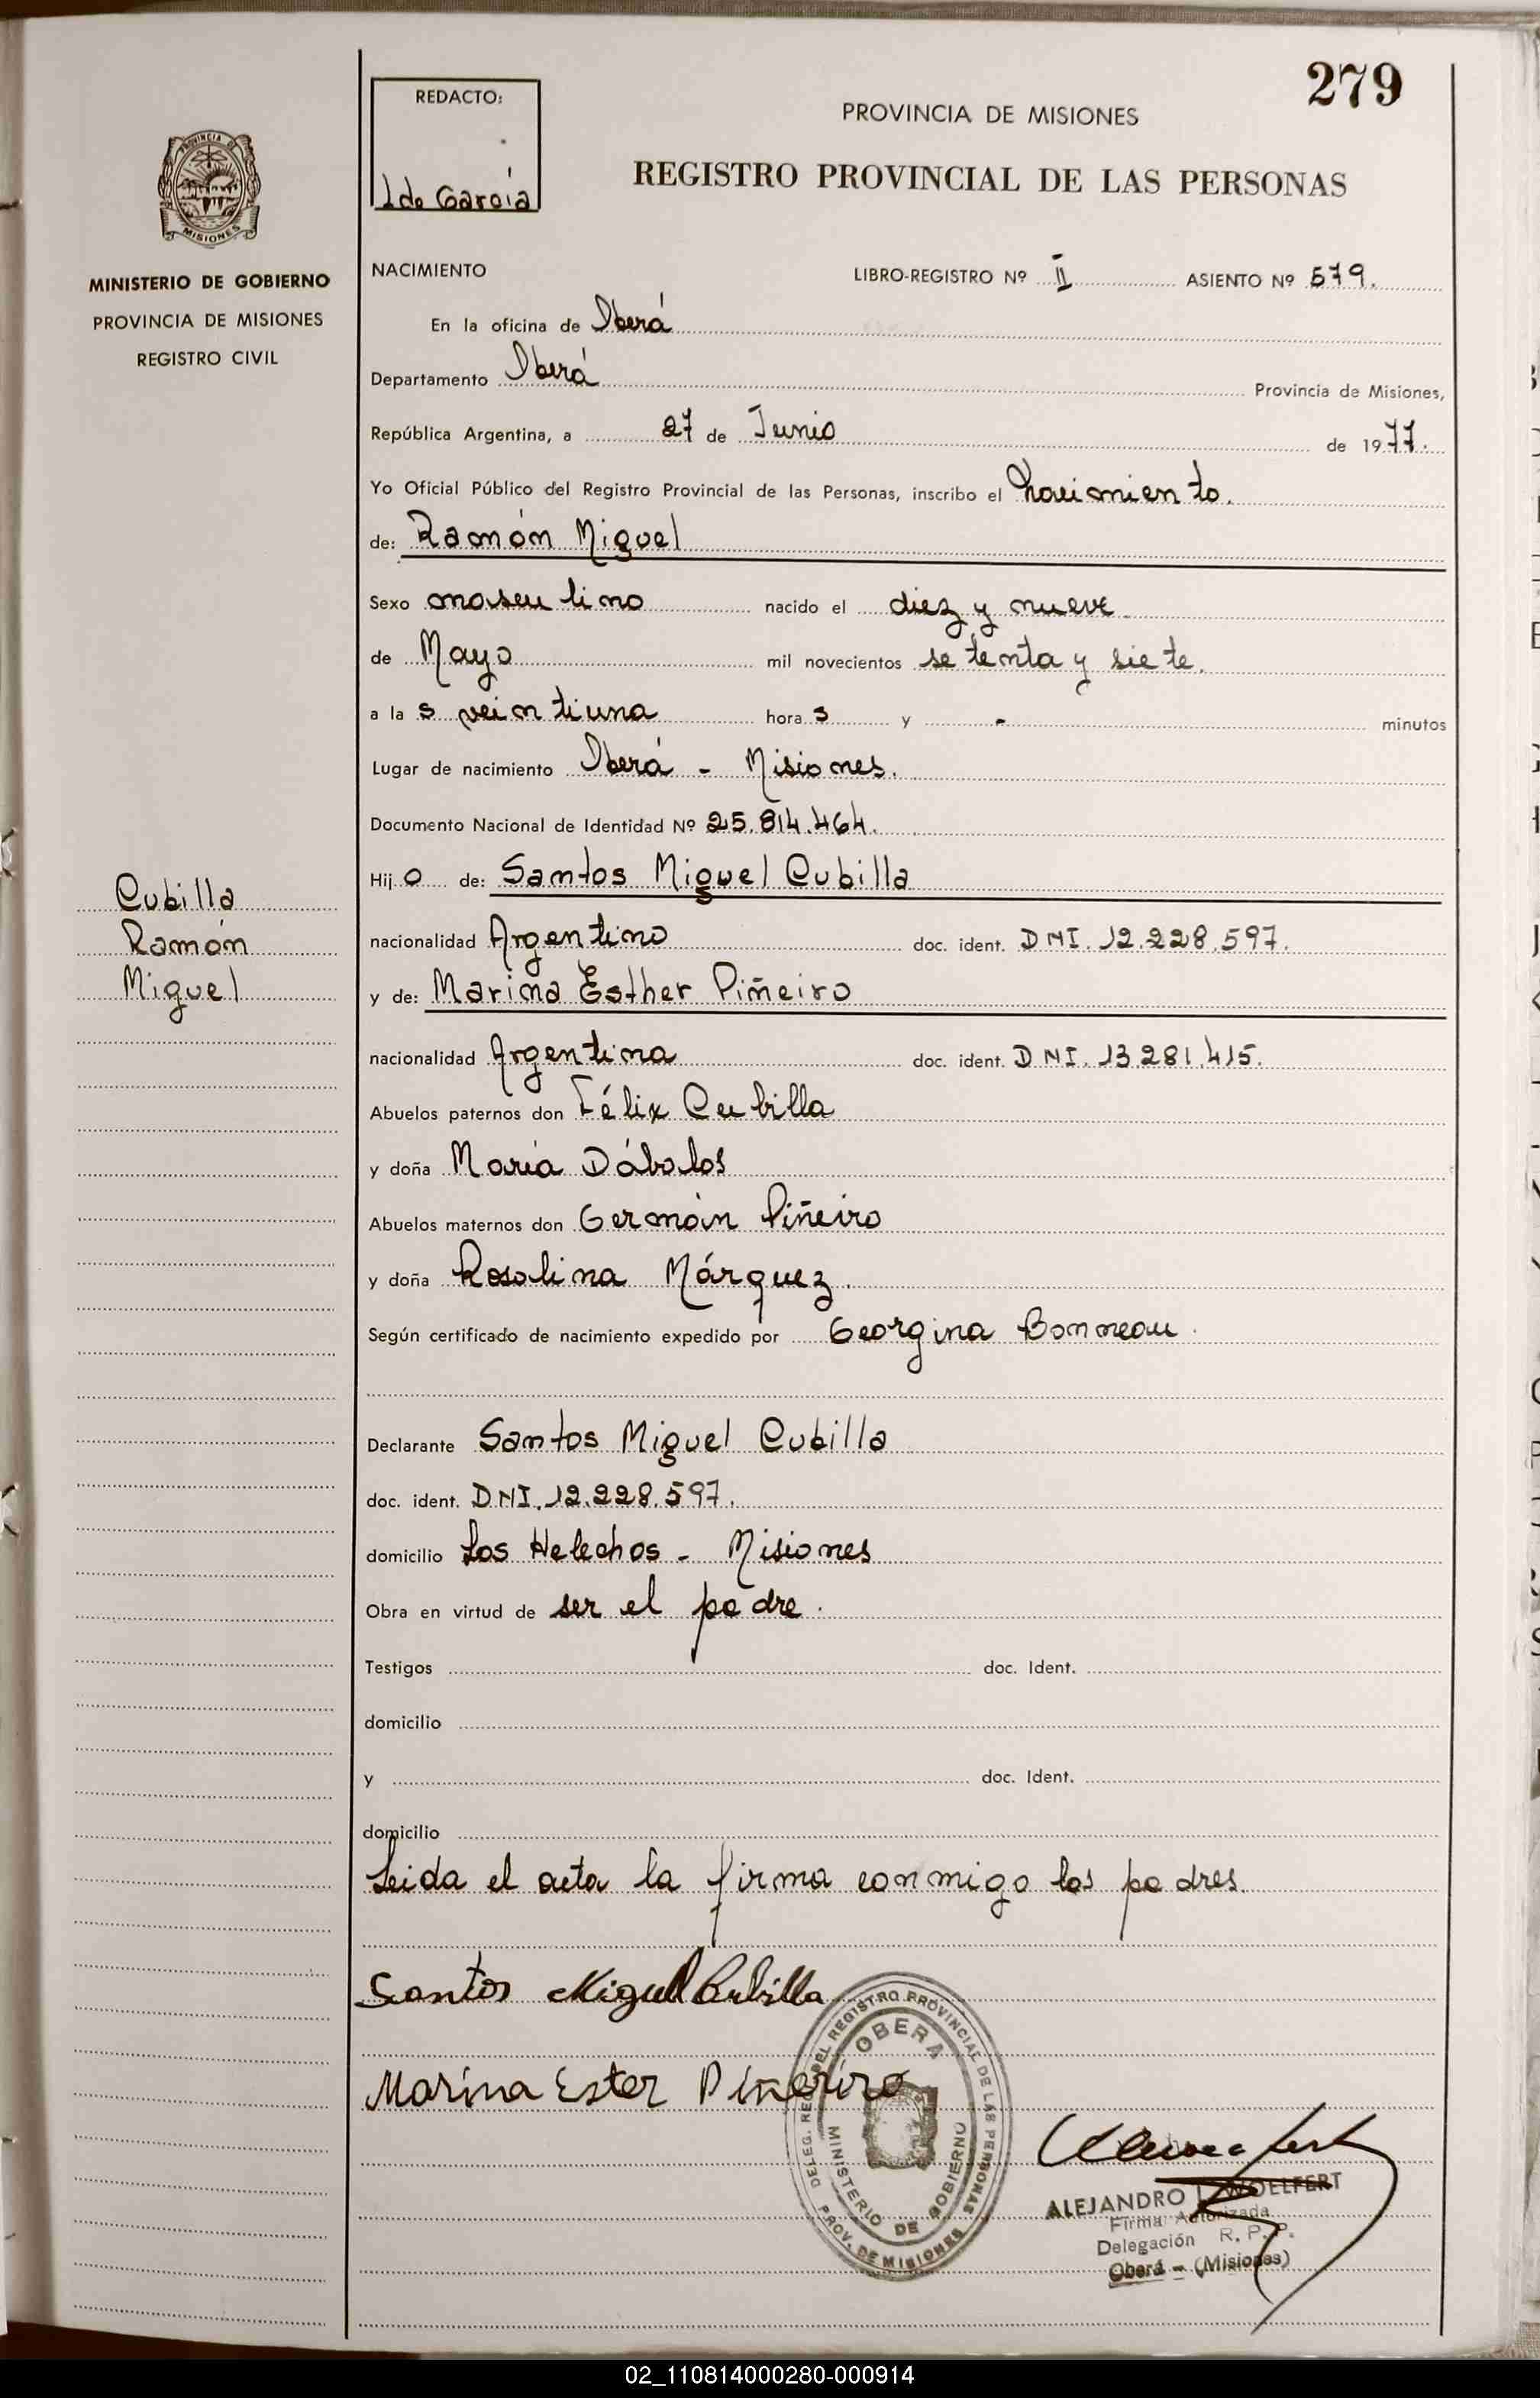 279
REDACTO:
PROVINCIA DE MISIONES
REGISTRO PROVINCIAL DE LAS PERSONAS
I de García
PROVINCIA DE
MISIONES
MINISTERIO DE GOBIERNO
PROVINCIA DE MISIONES
REGISTRO CIVIL
NACIMIENTO LIBRO-REGISTRO Nº II ASIENTO Nº 579.
En la oficina de Oberá
Departamento Oberá Provincia de Misiones,
República Argentina, a 27 de Junio de 1977.
Yo Oficial Público del Registro Provincial de las Personas, inscribo el nacimiento.
de: Ramón Miguel
Sexo masculino nacido el diez y nueve
de Mayo mil novecientos setenta y siete.
a las veintiuna horas y - minutos
Lugar de nacimiento Oberá - Misiones.
Documento Nacional de Identidad Nº 25.814.464.
Hijo de: Santos Miguel Cubilla
Cubilla
Ramón
Miguel
nacionalidad Argentino doc. ident. DNI. 12.228.597.
y de: Marina Esther Piñeiro
nacionalidad Argentina doc. ident. DNI. 13.281.415.
Abuelos paternos don Félix Cubilla
y doña María Dábalos
Abuelos maternos don Germán Piñeiro
y doña Rosalina Márquez.
Según certificado de nacimiento expedido por Georgina Bonneau.
Declarante Santos Miguel Cubilla
doc. ident. DNI. 12.228.597.
domicilio Los Helechos - Misiones
Obra en virtud de ser el padre.
Testigos doc. Ident.
domicilio
y doc. Ident.
domicilio
Leida el acta la firma conmigo los padres
Santos Miguel Cubilla
Marina Ester Piñeriro
DELEG. REG. DEL REGISTRO PROVINCIAL DE LAS PERSONAS
OBERA
MINISTERIO DE GOBIERNO
PROV. DE MISIONES
ALEJANDRO L. WOELFERT
Firma Autorizada
Delegación R. P. P.
Oberá - (Misiones)
02_110814000280-000914